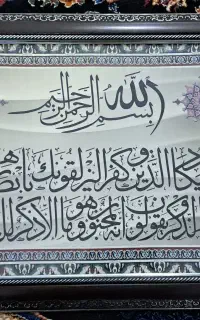 بسم الله الرحمن الرحيم
يكاد الذين كفروا ليزلقونك
الذكر ويقولون إنه لمجنون وما هو إلا ذكر